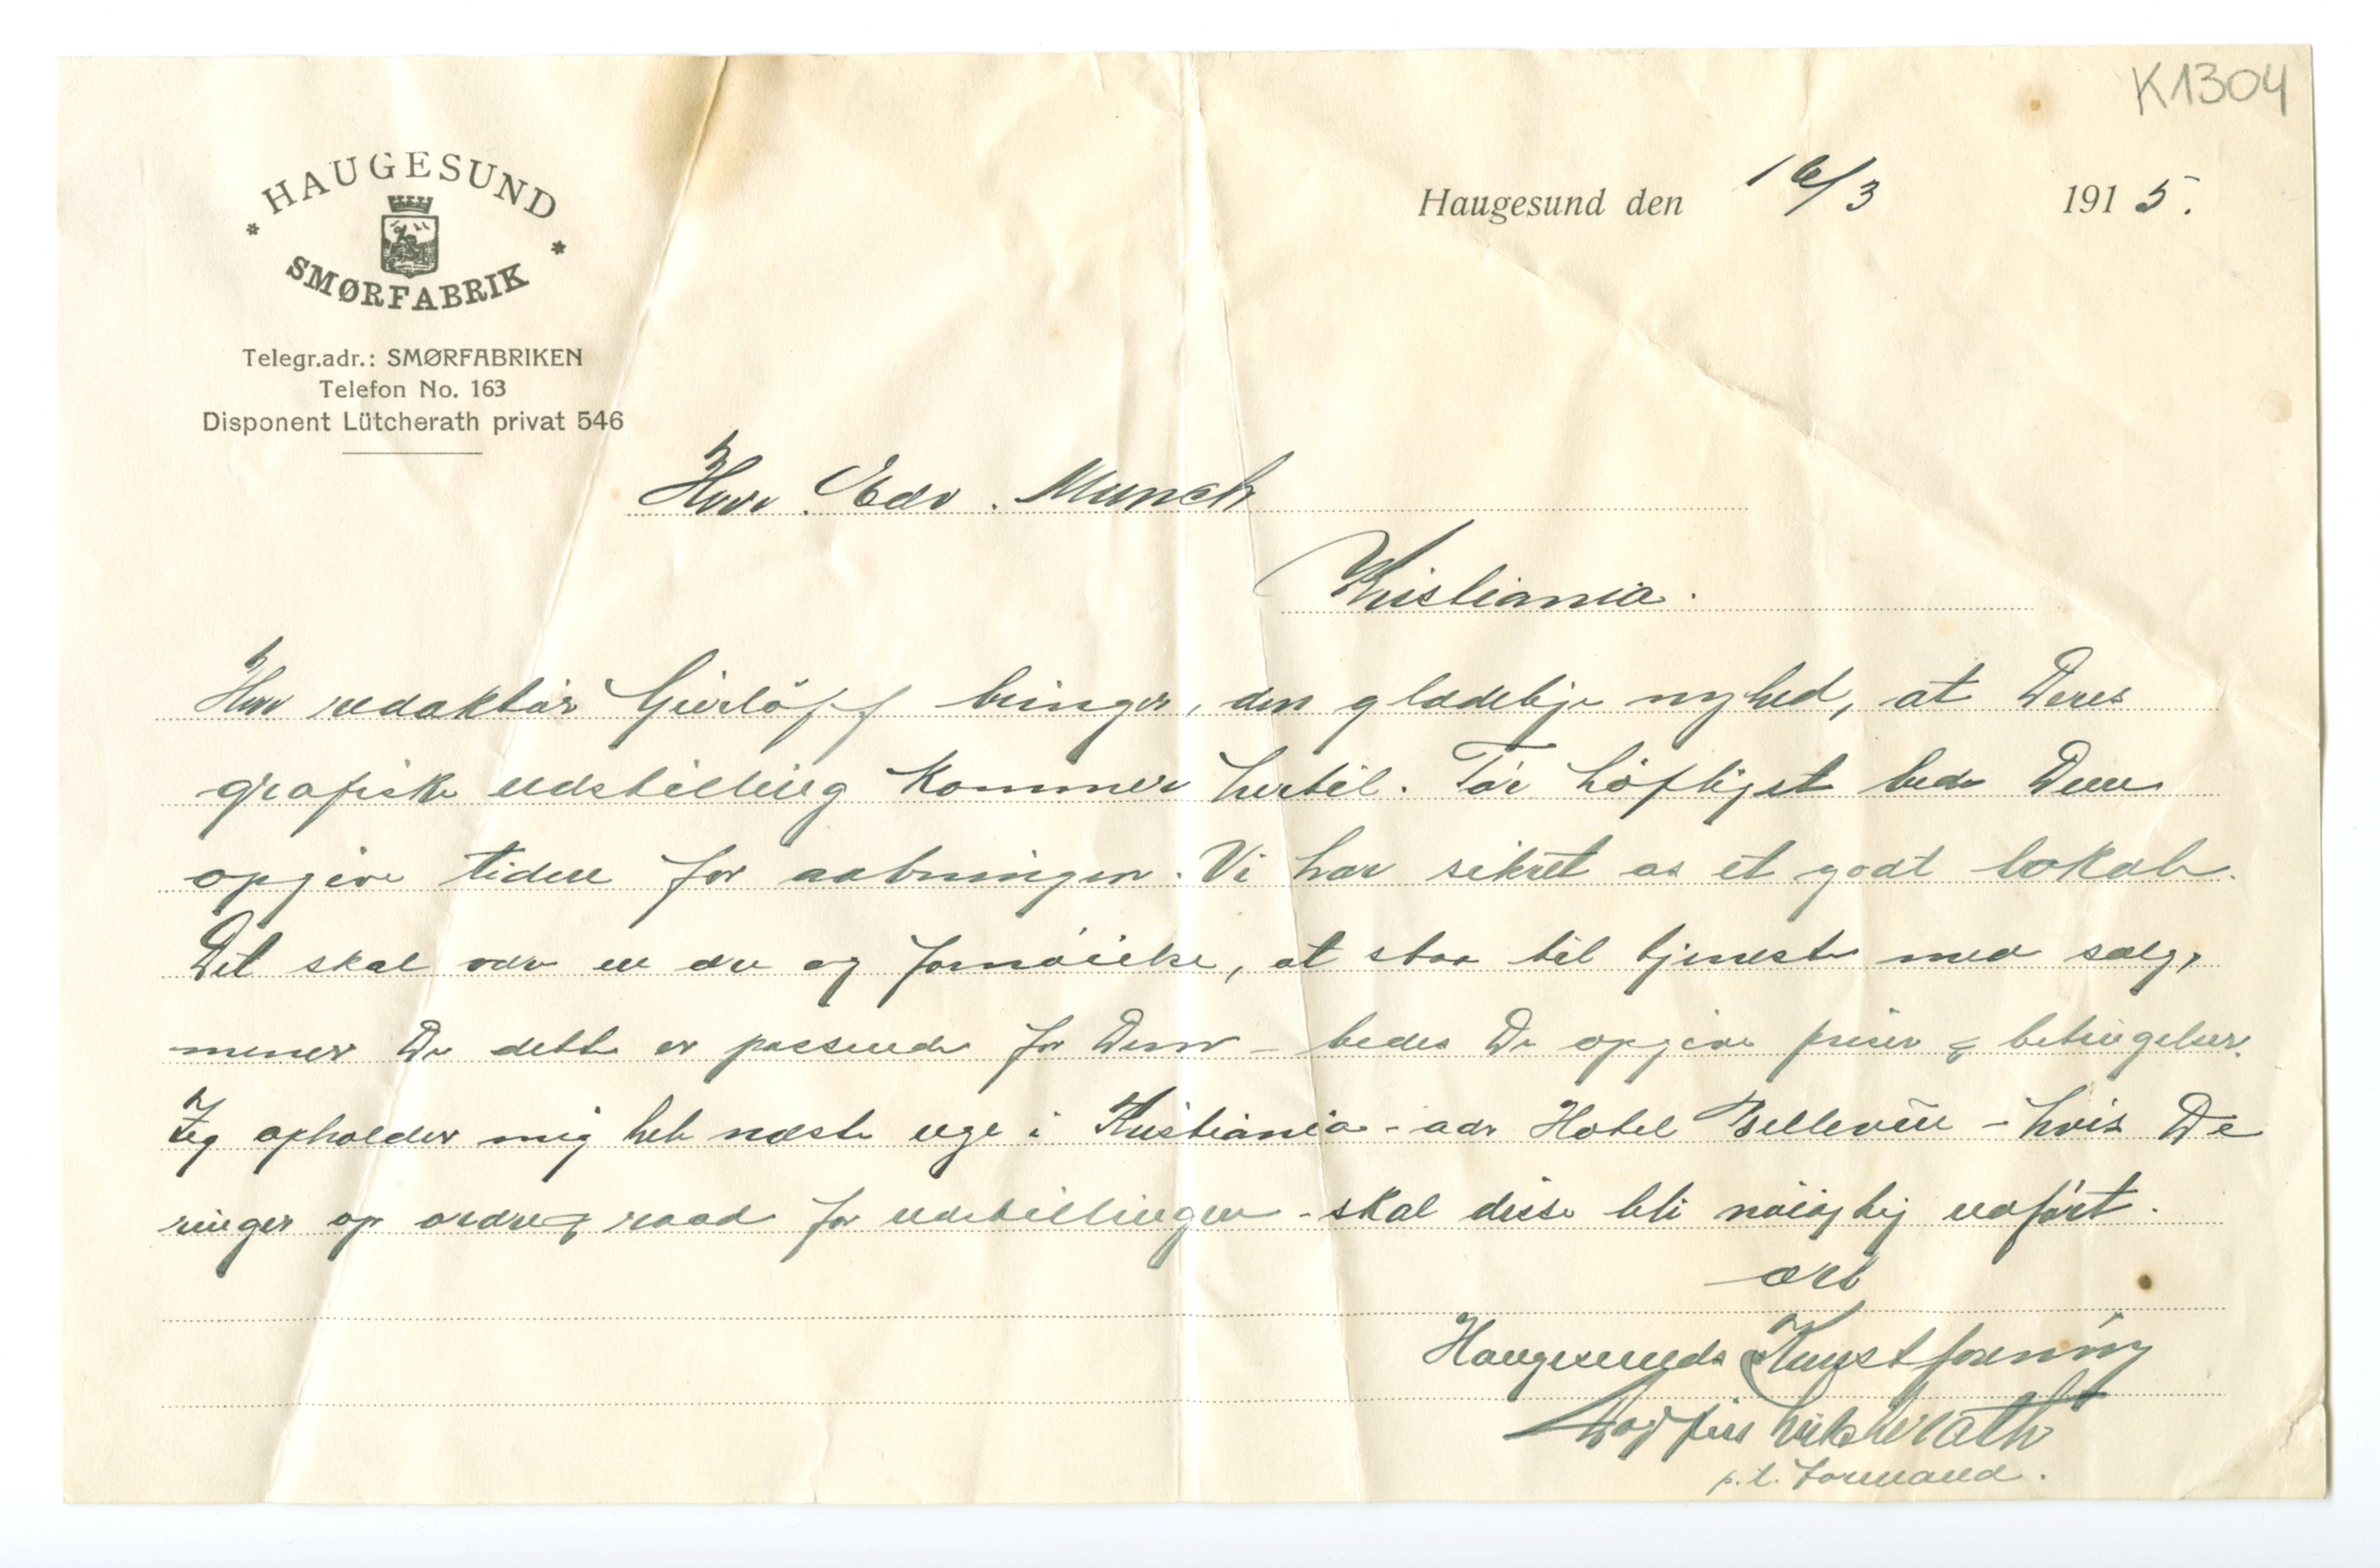 K1304
HAUGESUND
SMØRFABRIK
Telegr.adr.: SMØRFABRIKEN
Telefon No. 163
Disponent Lütcherath privat 546
Haugesund den 16/3 1915.
Herr. Edv. Munch
Kristiania.
Herr redaktør Gierløff bringer, den glædelige nyhed, at Deres
grafiske udstilling kommer hertil. Tør høfligst bede Dem
opgive tiden for aabningen. Vi har sikret os et godt lokale.
Det skal være en ære og fornøielse, at staa til tjeneste med salg,
mener De dette er passende for Dem – bedes De opgive priser & betingelser.
Jeg opholder mig hele næste uge i Kristiania – adr Hotel Bellevüe – hvis De
ringer op ordre & raad for udstillingen – skal disse bli nøiagtig udført.
ærb
Haugesunds Kunstforening
Dagfin Lütcherath
p.t. formand.